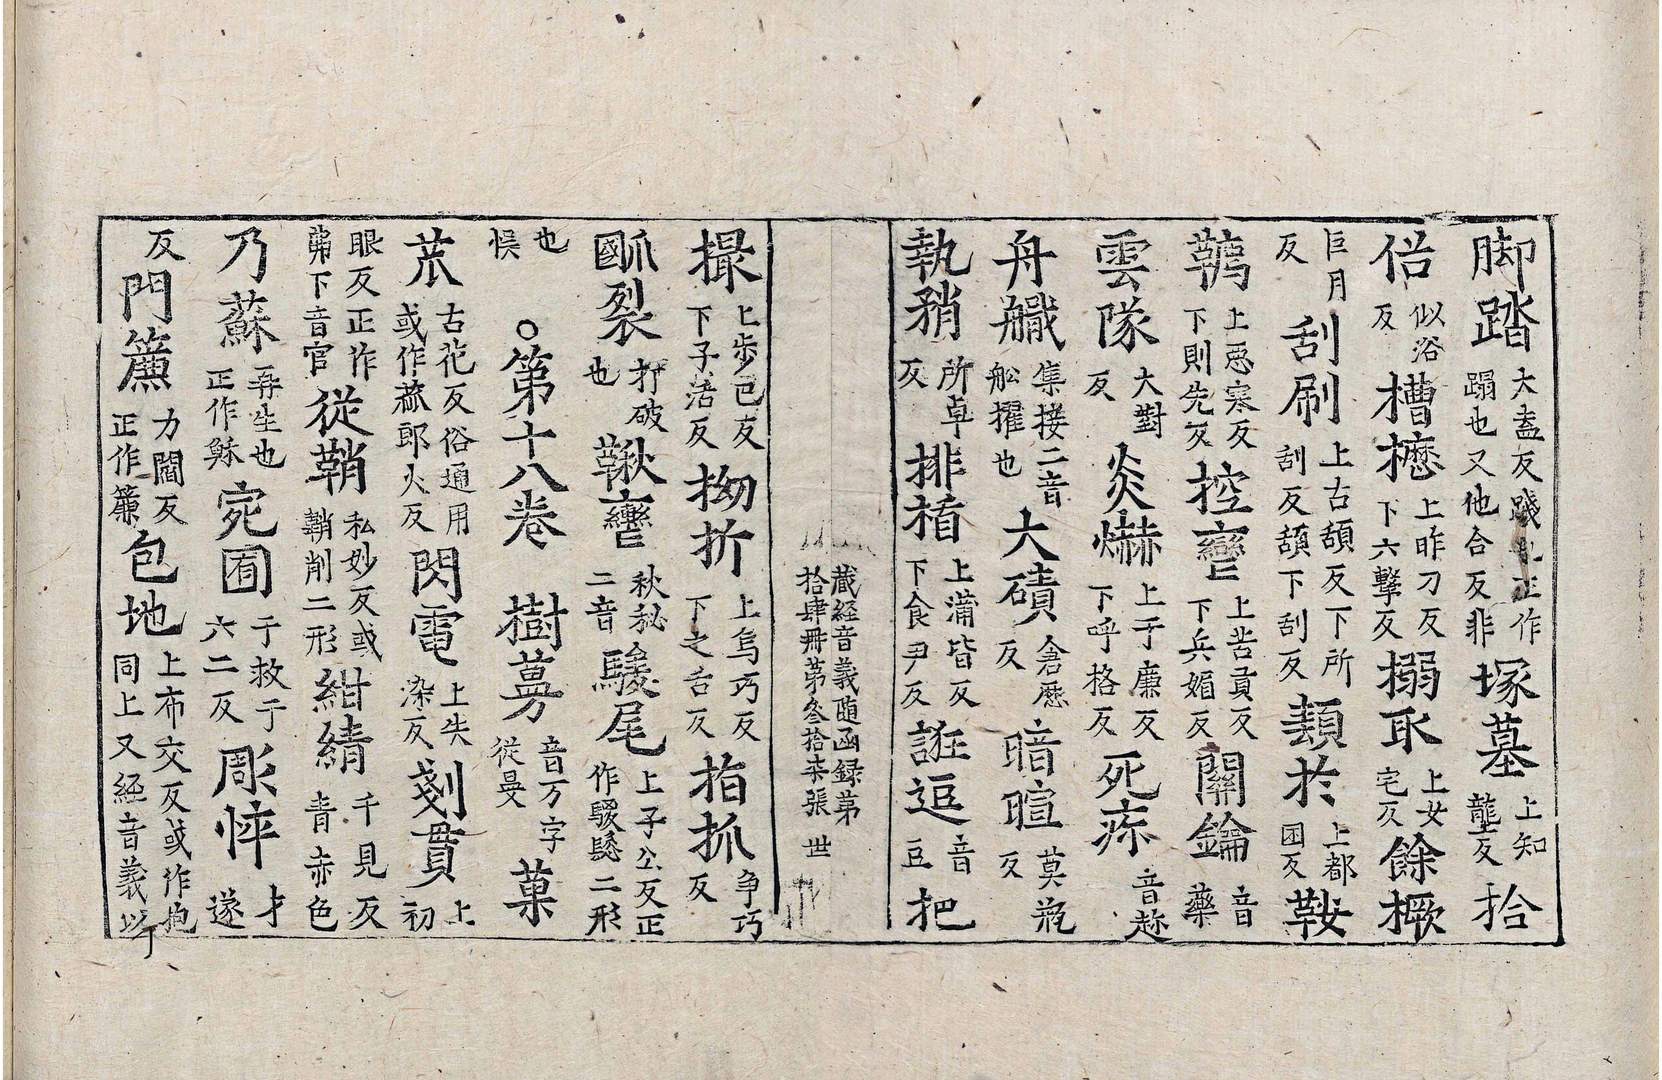 脚踏大盍反踐也正作蹋也又他合反非塚墓上知壟反拾
俗似浴反槽櫪上昨刀反下六擊反搦取上女宅反餘橛
巨月反刮刷上古頢反下所刮反頢下刮反頞於上都困反鞍
韉上惡寒反下則先反控轡上苦貢反下兵媚反關鑰音藥
雲隊大對反炎爀上于廉反下呼格反死𤵜音
舟檝集接二音舩擢也大磧倉歷反暗暄莫反
執矟所卓反排楯上蒲皆反下食尹反誑逗音豆把
藏經音義隨函録第拾肆冊第叄拾柒張 世
撮上步巴反下子活反拗折上烏巧反下之舌反掐抓爭巧反
㼌裂打破也鞦轡秋秘二音騣尾上子公反正作騣鬉二形
也悮〇第十八卷 樹蔓音万字從曼菓
苽古花反俗通用或作蓏郎火反閃電上失染反剗貫上初
眼反正作弗下音官從鞘私妙反或鞘削二形紺綪千見反青赤色
乃蘇再生也正作穌宛囿于救于六二反彫悴才遂
反門簾力閻反正作簾包地上布交反或作抱同上又經音義以